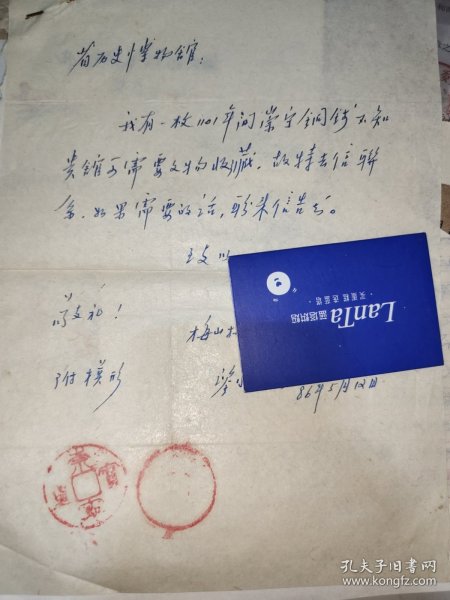 省历史博物馆：
我有一枚1101年间崇宁铜钱不知
贵馆可需要文物收藏，故特去信联
系，如果需要的话，盼来信告知。
致以
敬礼！
梅山
附模形
86年5月12日
LanTa
蓝塔奶奶
崇宁通宝
孔夫子旧书网
www.kongfz.com